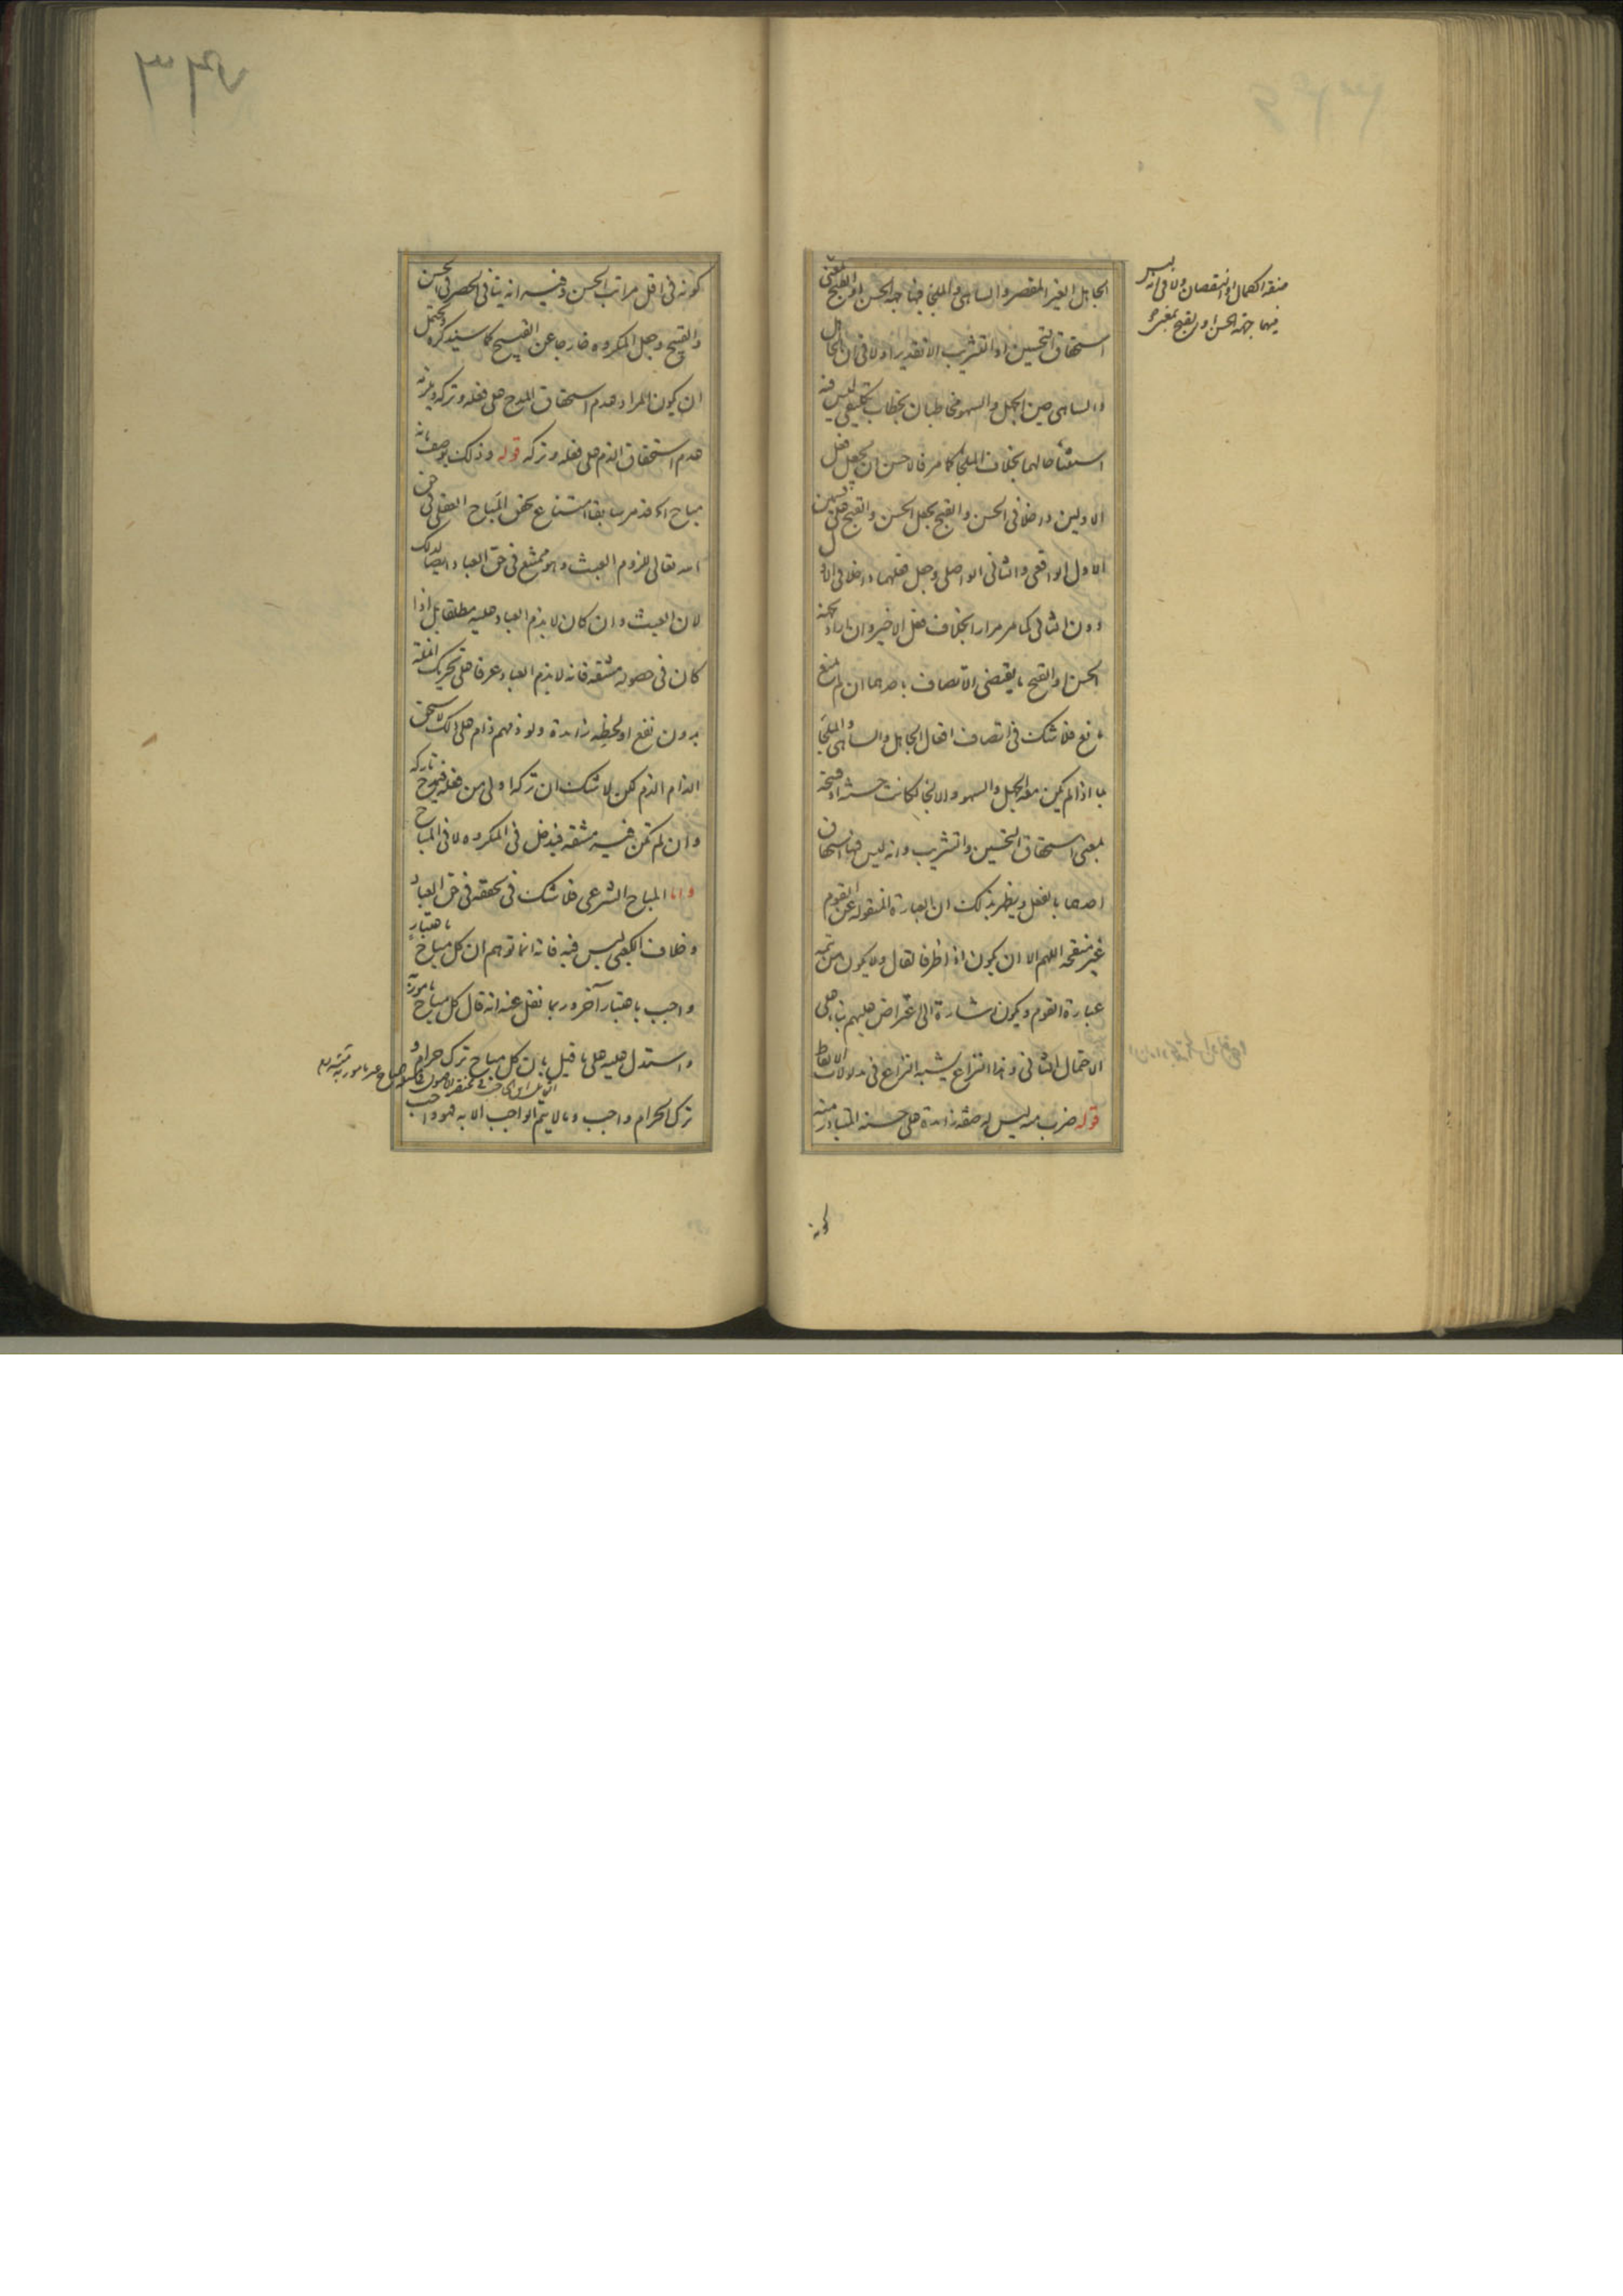 الجاهل الغير المقصر والساهى والملجأ فيها جهة الحسن او القبح بمعنى
استحقاق التحسين او التثريب الا تقديرا ولا فى ان الجاهل
والساهى حين الجهل والسهو مخاطبان بخطاب تكليفى ليس فيه
استيفاء حالهما بخلاف الملجأ كما مر فالاحسن ان يجعل فعل
الاولين داخلا فى الحسن والقبح بجعل الحسن والقبح على قسمين
الاول الواقعى والثانى الواصلى وجعل فعلهما داخلا فى الاول
دون الثانى كما مر مرارا بخلاف فعل الاخير وان اراد بجهة
الحسن او القبح ما يقتضى الاتصاف باحدهما ان لم يمنع
مانع فلا شك فى اتصاف افعال الجاهل والساهى والملجأ
بما اذا لم يكن معه الجهل والسهو والالجاء لكانت حسنة او قبيحة
بمعنى استحقاق التحسين والتثريب وانه ليس فيها استحقاق
احدهما بالفعل ويظهر بذلك ان العبارة المنقولة عن القوم
غير منقحة اللهم الا ان يكون اذ ظرفا لقال ولا يكون من تتمة
عبارة القوم ويكون اشارة الى اعتراض عليهم بناء على
الاحتمال الثانى وهذا النزاع يشبه النزاع فى مدلولات الالفاظ
قوله ضرب منه ليس له صفة زايدة على حسنه المتبادر منه
صفة الكمال او النقصان ولا فى انه ليس
فيها جهة الحسن او القبح بمعنى
كونه
كونه فى اقل مراتب الحسن وفيه انه ينافى الحصر فى الحسن
والقبيح وجعل المكروه خارجا عن القبيح كما سيذكره ويحتمل
ان يكون المراد عدم استحقاق المدح على فعله وتركه ويلزمه
عدم استحقاق الذم على فعله وتركه قوله وذلك يوصف بانه
مباح اه قد مر سابقا امتناع تحقق المباح العقلى فى حق
الله تعالى للزوم العبث وهو ممتنع فى حق العباد ايضا لذلك
لان العبث وان كان لا يذم العباد عليه مطلقا بل اذا
كان فى حصوله مشقة فانه لا يذم العباد عرفا على تحريك انملة
بدون نفع او لحظة زايدة ولو ذمهم ذام على ذلك لاستحق
الذام الذم لكن لا شك ان تركه اولى من فعله فيمدح تاركه
وان لم تكن فيه مشقة فيدخل فى المكروه لا فى المباح
واما المباح الشرعى فلا شك فى تحققه فى حق العباد
وخلاف الكعبى ليس فيه فانه انما توهم ان كل مباح باعتبار
واجب باعتبار آخر وربما نقل عنه انه قال كل مباح مامور به
واستدل عليه على ما قيل بان كل مباح ترك حرام و
ترك الحرام واجب وما لا يتم الواجب الا به فهو واجب